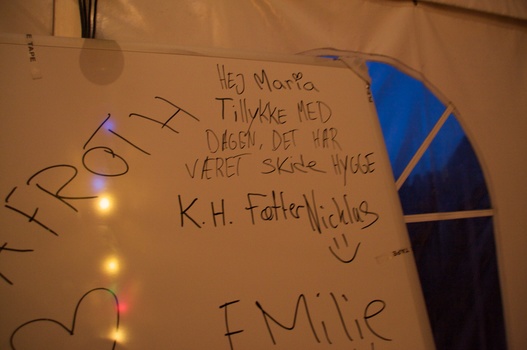 HEJ Maria
Tillykke MED
DAGEN, DET HAR
VÆRET Skide HYGGE
K.H. Fætter Nicklas
EMilie
TAPE
TAPE